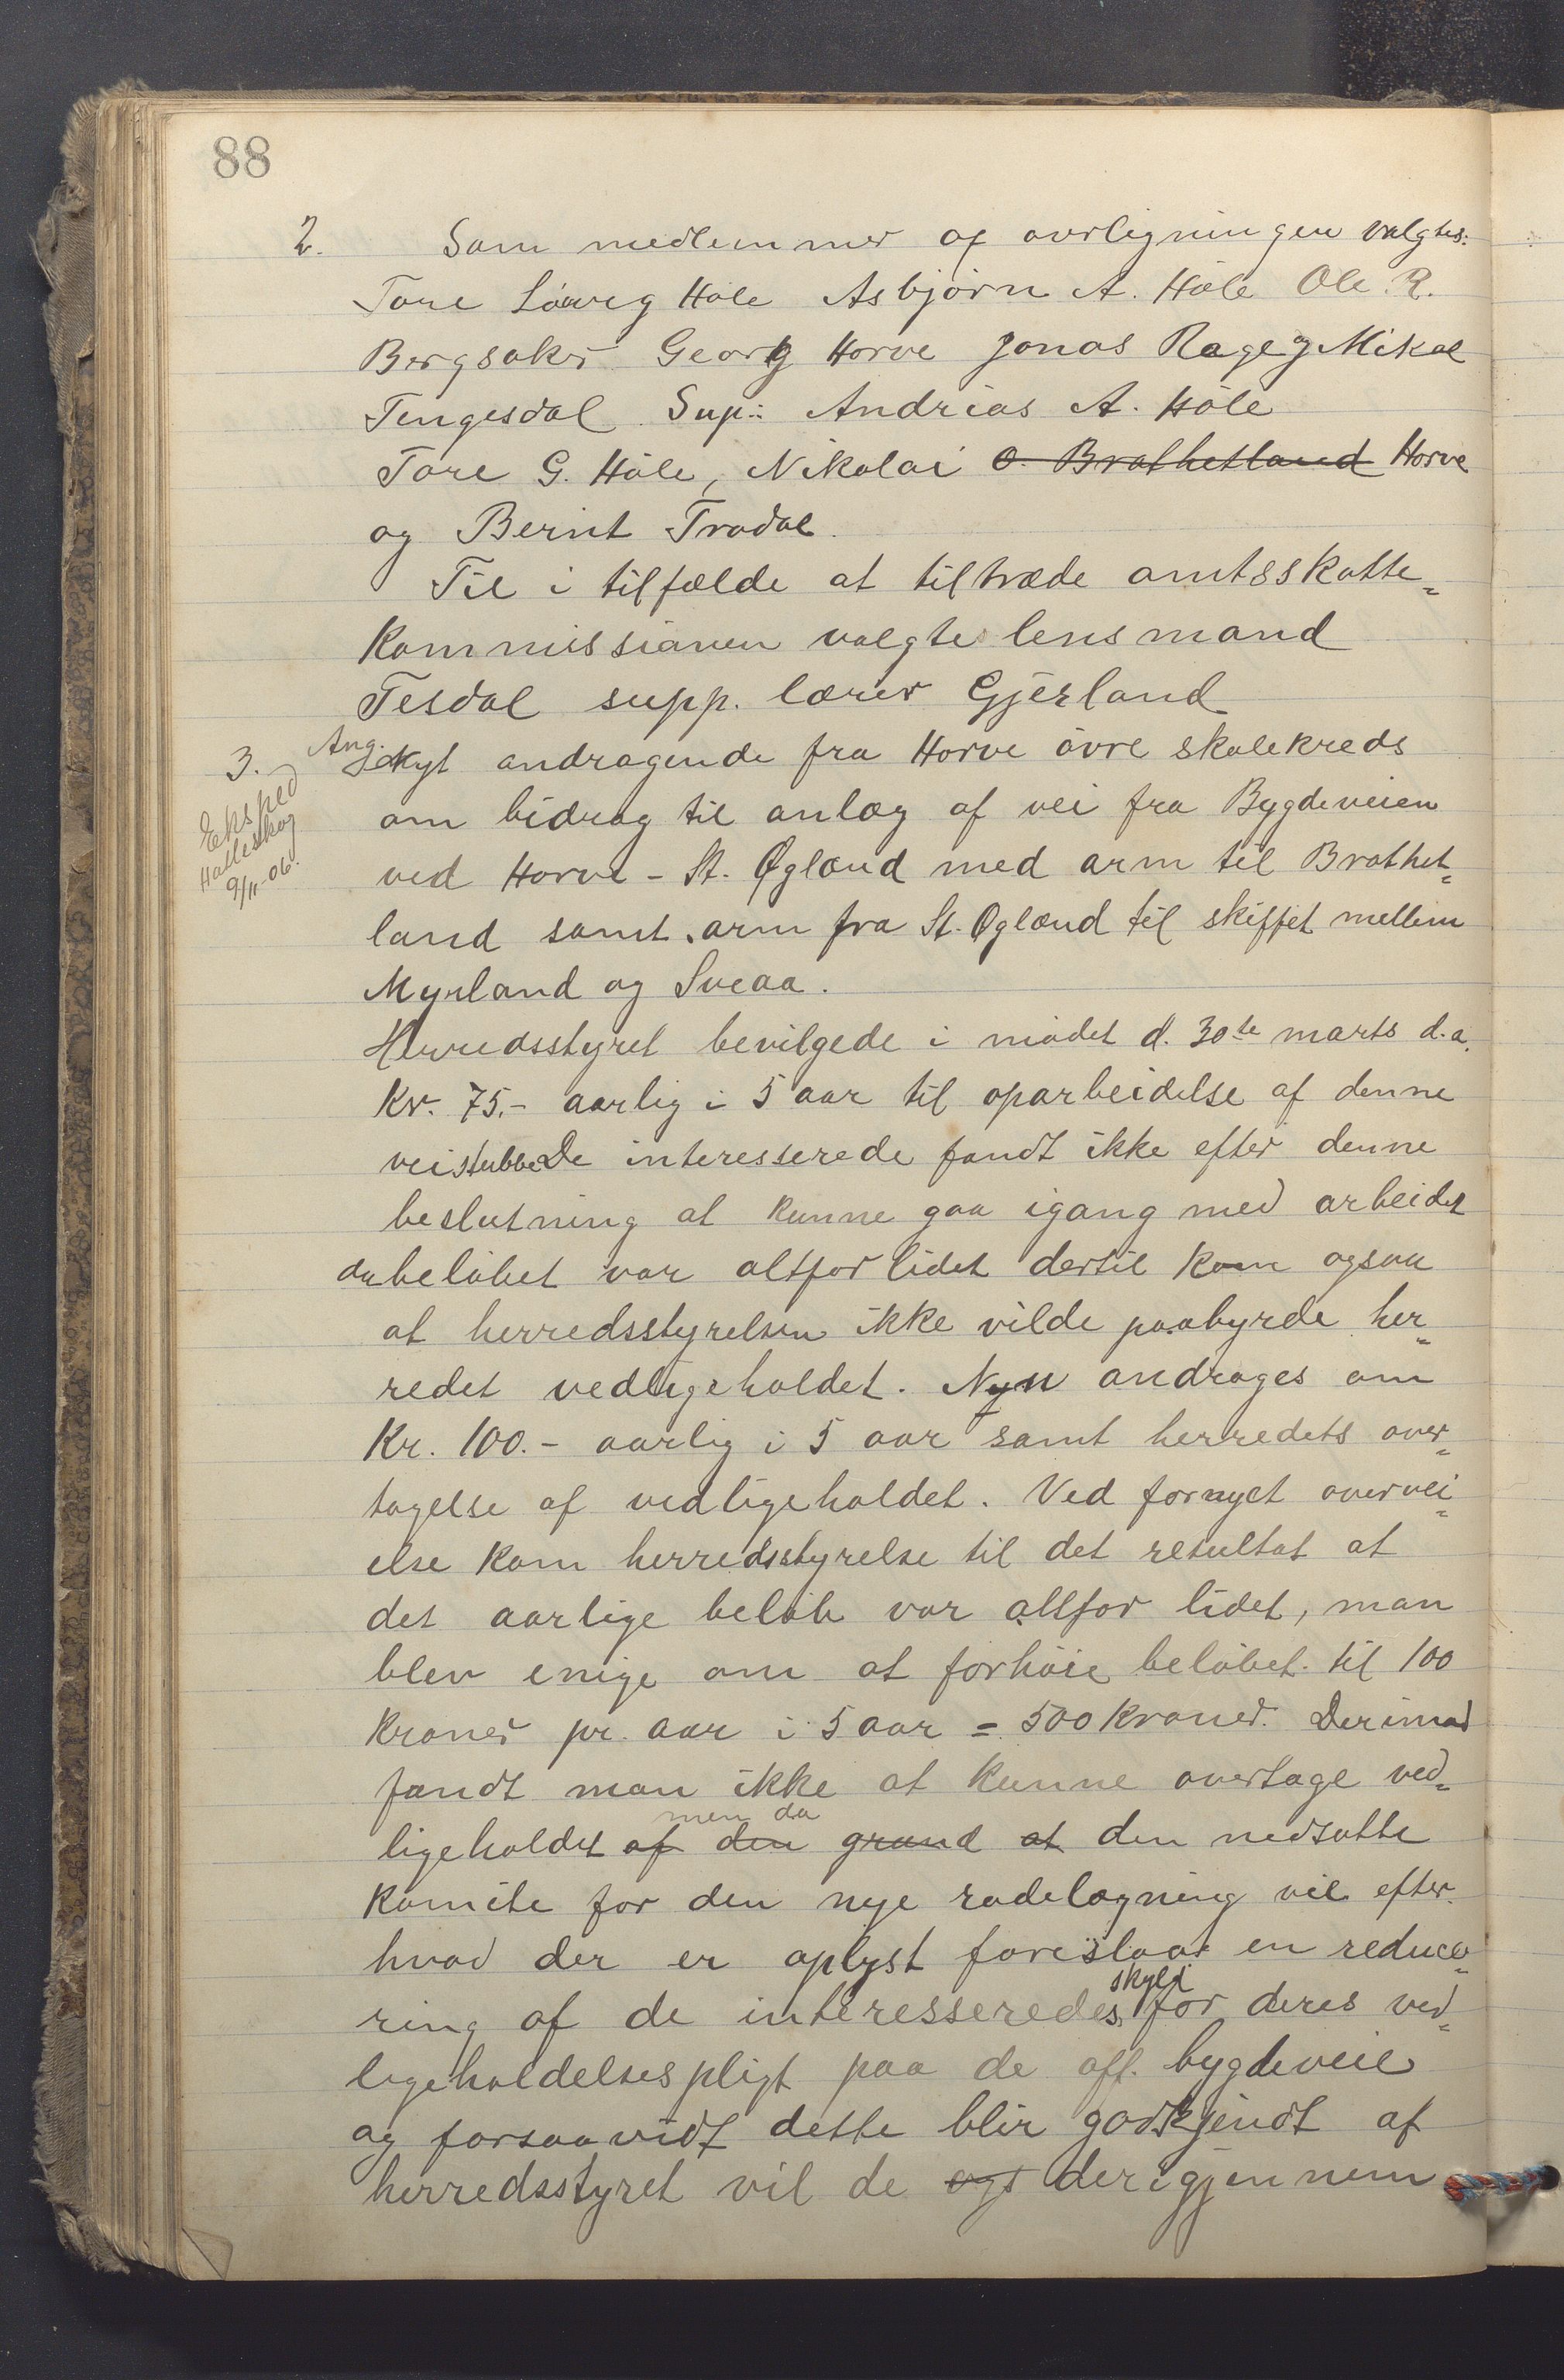 88
2. Som medlemmer af overligningen valgtes:
Tore Løvreg Høle Asbjørn A. Høle Ole R.
Bergsaker Georg Horve Jonas Rage og Mikal
Tengesdal Sup: Andreas A. Høle
Tore G. Høle, Nikolai O. Brathetland Horve
og Bernt Trodal.
Til i tilfælde at tiltræde amtsskatte-
kommissionen valgtes lensmand
Tesdal supp. lærer Gjerland
3. Ang. nyt andragende fra Horve øvre skolekreds
Eksped
Halleskog
9/11-06.
om bidrag til anlæg af vei fra Bygdeveien
ved Horve - St. Øgland med arm til Brathet-
land samt arm fra St. Øgland til skiftet mellem
Myrland og Sveaa.
Herredsstyret bevilgede i mødet d. 30te marts d.a.
Kr. 75,- aarlig i 5 aar til oparbeidelse af denne
veistubbe De interesserede fandt ikke efter denne
beslutning at kunne gaa igang med arbeidet
da beløbet var altfor lidet dertil kom ogsaa
at herredsstyrelsen ikke vilde paabyrde her-
redet vedligeholdet. Nu andrages om
Kr. 100.- aarlig i 5 aar samt herredets over-
tagelse af vedligeholdet. Ved fornyet overvei-
else kom herredsstyrelse til det resultat at
det aarlige beløb var altfor lidet, man
blev enige om at forhøie beløbet til 100
kroner pr. aar i 5 aar = 500 kroner. Derimod
fandt man ikke at kunne overtage ved-
men da
ligeholdet af den grund at den nedsatte
komite for den nye rodelægning vil efter
hvad der er oplyst foreslaa en reduce-
skyld
ring af de interesseredes for deres ved-
ligeholdelsespligt paa de off. bygdeveie
og forsaavidt dette blir godkjendt af
herredsstyret vil de ogs derigjennem